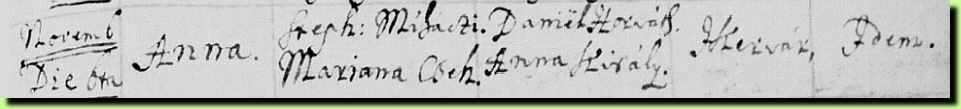 Novemb
Die 6ta
Anna.
Steph: Mihacti.
Mariana Cseh.
Daniël Horváth.
Anna Király.
Idem.